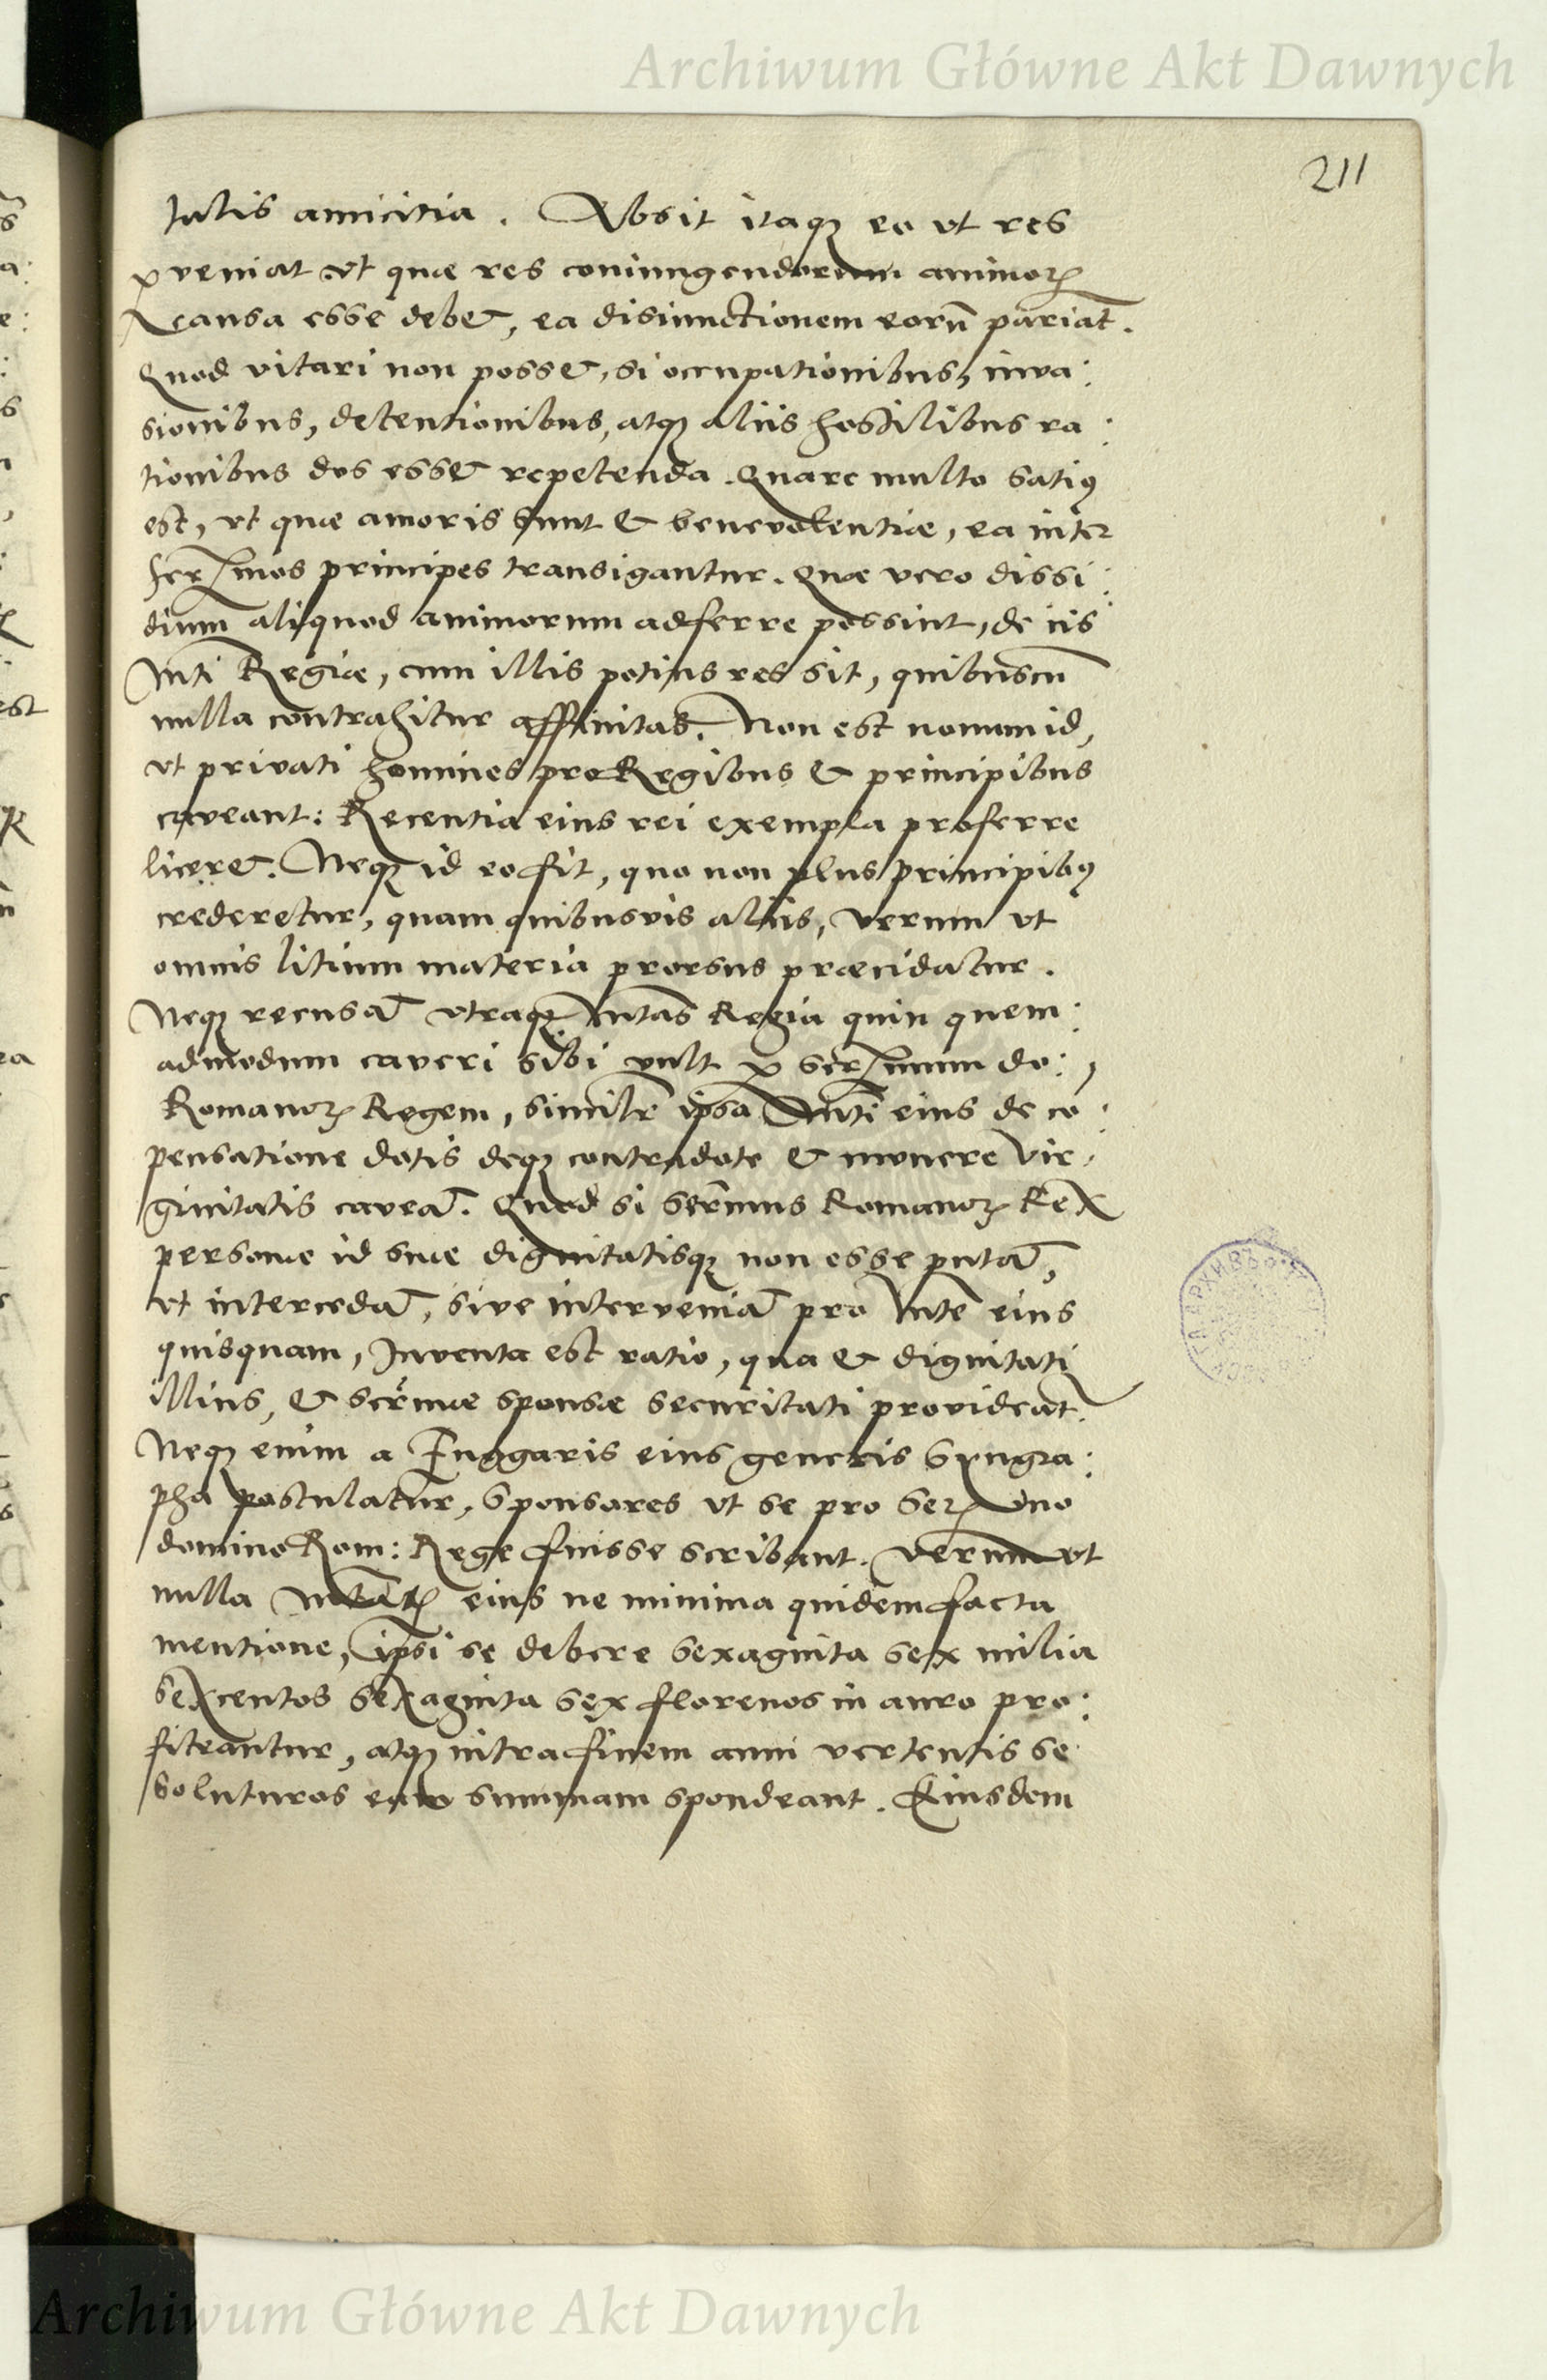 Archiwum Główne Akt Dawnych
211
talis amicitia. Absit itaqꝫ eo ut res
ꝑveniat ut quæ res coniungendorum animoꝝ
causa esse debet, ea disiunctionem eorū pariat.
Quod vitari non posset, si occupationibus, inva:
sionibus, detentionibus, atqꝫ aliis hostilibus ra:
tionibus dos esset repetenda. Quare multo satiꝰ
est, ut quæ amoris sunt & benevolentiæ, ea inter
serꝫmos principes transigantur. Quæ vero dissi:
dium aliquod animorum adferre possint, de iis
Mti Regiæ, cum illis potius res sit, quibuscū
nulla contrahitur affinitas. Non est novum id,
ut privati homines pro Regibus & principibus
caveant: Recentia eius rei exempla proferre
liceret. Neqꝫ id eo fit, quo non plus principibꝰ
crederetur, quam quibusvis aliis, verum ut
omnis litium materia prorsus præcidatur.
Neqꝫ recusat utraqꝫ Mtas Regia quin quem:
admodum caveri sibi vult ꝑ serꝫmum do:
Romanoꝝ Regem, similr ipsa Mti eius de cō:
pensatione dotis deqꝫ contradote & munere vir:
ginitatis caveat. Quod si sermus Romanoꝝ Rex
personæ id suæ dignitatisqꝫ non esse putat,
ut intercedat, sive interveniat pro Mte eius
quisquam, Inventa est ratio, qua & dignitati
illius, & sermæ sponsæ securitati provideat.
Neqꝫ enim a Fuggaris eius generis Syngra:
pha postulatur, Sponsores ut se pro Serꝫmo
domino Rom: Rege fuisse scribant. Verum ut
nulla Mtatis eius ne minima quidem facta
mentione, ipsi se debere sexaginta sex milia
sexcentos sexaginta sex florenos in auro pro:
fiteantur, atqꝫ intra finem anni vertentis se
soluturos eam summam spondeant. Eiusdem
Archiwum Główne Akt Dawnych